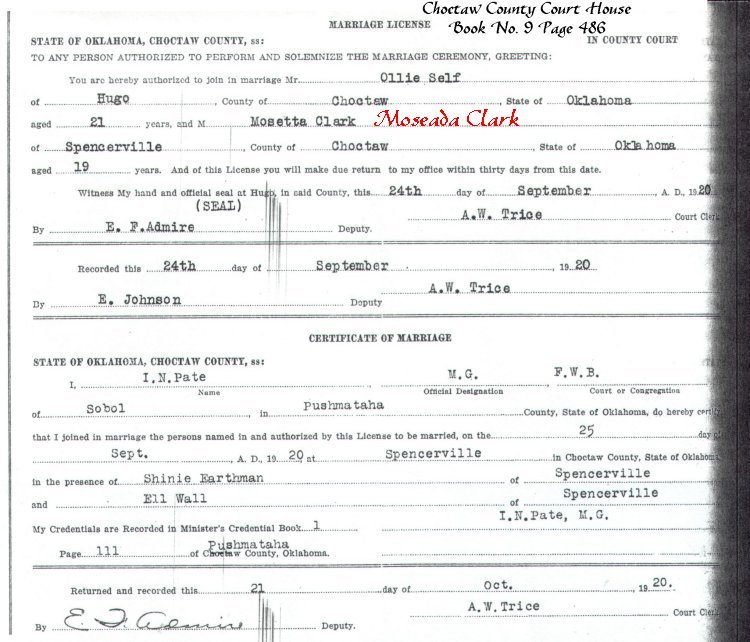 Choctaw County Court House
MARRIAGE LICENSE Book No. 9 Page 486
STATE OF OKLAHOMA, CHOCTAW COUNTY, ss: IN COUNTY COURT
TO ANY PERSON AUTHORIZED TO PERFORM AND SOLEMNIZE THE MARRIAGE CEREMONY, GREETING:
You are hereby authorized to join in marriage Mr. Ollie Self
of Hugo, County of Choctaw, State of Oklahoma
aged 21 years, and M Mosetta Clark Moseada Clark
of Spencerville, County of Choctaw, State of Oklahoma
aged 19 years. And of this License you will make due return to my office within thirty days from this date.
Witness My hand and official seal at Hugo, in said County, this 24th day of September A. D., 1920
(SEAL) A.W. Trice Court Clerk
By E. F.Admire Deputy.
Recorded this 24th day of September, 1920
A.W. Trice
By E. Johnson Deputy
CERTIFICATE OF MARRIAGE
STATE OF OKLAHOMA, CHOCTAW COUNTY, ss:
I, I.N.Pate M.G. F.W.B.
Name Official Designation Court or Congregation
of Sobol in Pushmataha County, State of Oklahoma, do hereby certify
that I joined in marriage the persons named in and authorized by this License to be married, on the 25 day of
Sept. A. D., 1920 at Spencerville in Choctaw County, State of Oklahoma
in the presence of Shinie Earthman of Spencerville
and Ell Wall of Spencerville
I.N.Pate, M.G.
My Credentials are Recorded in Minister's Credential Book 1
Pushmataha
Page 111 of Choctaw County, Oklahoma.
Returned and recorded this 21 day of Oct., 1920.
A.W.Trice Court Clerk
By E. F. Admire Deputy.